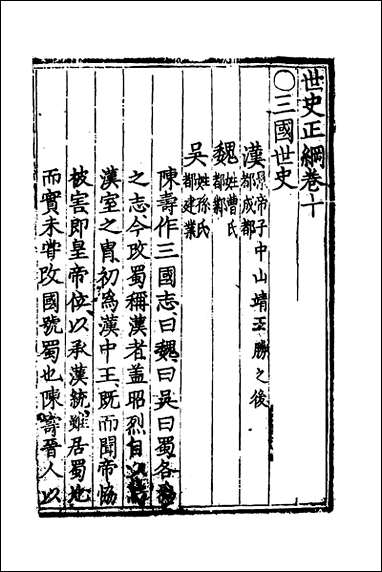 世史正綱卷十
○三國世史
漢景帝子中山靖王勝之後
都成都
魏姓曹氏
都鄴
吳姓孫氏
都建業
陳壽作三國志曰魏曰吳曰蜀各
之志今攺蜀稱漢者盖昭烈自
漢室之冑初為漢中王既而聞帝協
被害即皇帝位以承漢統雖居蜀地
而實未甞攺國號蜀也陳壽晉人以